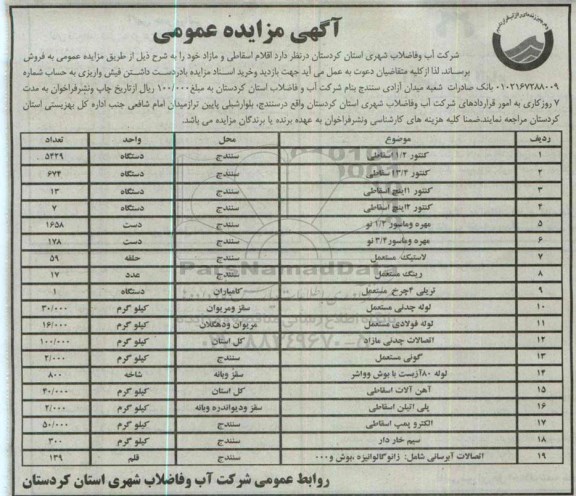 آگهی مزایده عمومی
شرکت آب وفاضلاب شهری استان کردستان درنظر دارد اقلام اسقاطی و مازاد خود را به شرح ذیل از طریق مزایده عمومی به فروش
برساند. لذا از کلیه متقاضیان دعوت به عمل می آید جهت بازدید وخرید اسناد مزایده بادردست داشتن فیش واریزی به حساب شماره
۰۱۰۲۱۶۷۲۸۸۰۰۹ بانک صادرات شعبه میدان آزادی سنندج بنام شرکت آب و فاضلاب استان کردستان به مبلغ۱۰۰/۰۰۰ ریال ازتاریخ چاپ ونشرفراخوان به مدت
۷ روزکاری به امور قراردادهای شرکت آب وفاضلاب شهری استان کردستان واقع درسنندج، بلوارشبلی پایین ترازمیدان امام شافعی جنب اداره کل بهزیستی استان
کردستان مراجعه نمایند.ضمنا کلیه هزینه های کارشناسی ونشرفراخوان به عهده برنده یا برندگان مزایده می باشد.
ردیف موضوع محل واحد تعداد
۱ کنتور ۱/۲ اسقاطی سنندج دستگاه ۵۳۲۹
۲ کنتور ۳/۴ اسقاطی سنندج دستگاه ۶۷۴
۳ کنتور ۱اینچ اسقاطی سنندج دستگاه ۱۳
۴ کنتور ۲اینچ اسقاطی سنندج دستگاه ۷
۵ مهره وماسور ۱/۲ نو سنندج دست ۱۶۵۸
۶ مهره وماسور ۳/۴ نو سنندج دست ۱۷۸
۷ لاستیک مستعمل سنندج حلقه ۵۹
۸ رینگ مستعمل سنندج عدد ۱۷
۹ تریلی ۴چرخ مستعمل کامیاران دستگاه ۱
۱۰ لوله چدنی مستعمل سقز ومریوان کیلو گرم ۳۰/۰۰۰
۱۱ لوله فولادی مستعمل مریوان ودهگلان کیلو گرم ۱۶/۰۰۰
۱۲ اتصالات چدنی مازاد کل استان کیلو گرم ۱۰۰/۰۰۰
۱۳ گونی مستعمل سنندج کیلو گرم ۲/۰۰۰
۱۴ لوله ۸۰آزبست با بوش وواشر سقز وبانه شاخه ۸۰۰
۱۵ آهن آلات اسقاطی کل استان کیلو گرم ۴۰/۰۰۰
۱۶ پلی اتیلن اسقاطی سقز ودیواندره وبانه کیلو گرم ۲/۰۰۰
۱۷ الکترو پمپ اسقاطی سنندج کیلو گرم ۵۰/۰۰۰
۱۸ سیم خار دار سنندج کیلو گرم ۳۰۰
۱۹ اتصالات آبرسانی شامل: زانوگالوانیزه ،بوش و۰۰۰ سنندج قلم ۱۳۹
روابط عمومی شرکت آب وفاضلاب شهری استان کردستان